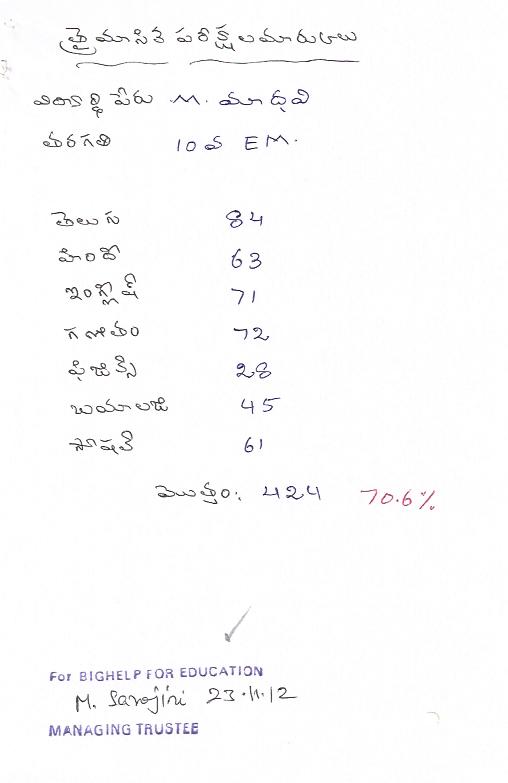 త్రైమాసిక పరీక్షల మారుకులు
విద్యార్థి పేరు M. మాధవి
తరగతి 10 వ EM.
తెలుగు 84
హిందీ 63
ఇంగ్లీష్ 71
గణితం 72
ఫిజిక్స్ 28
బయాలజి 45
సోషల్ 61
మొత్తం: 424 70.6%
For BIGHELP FOR EDUCATION
M. Sarojini 23.11.12
MANAGING TRUSTEE